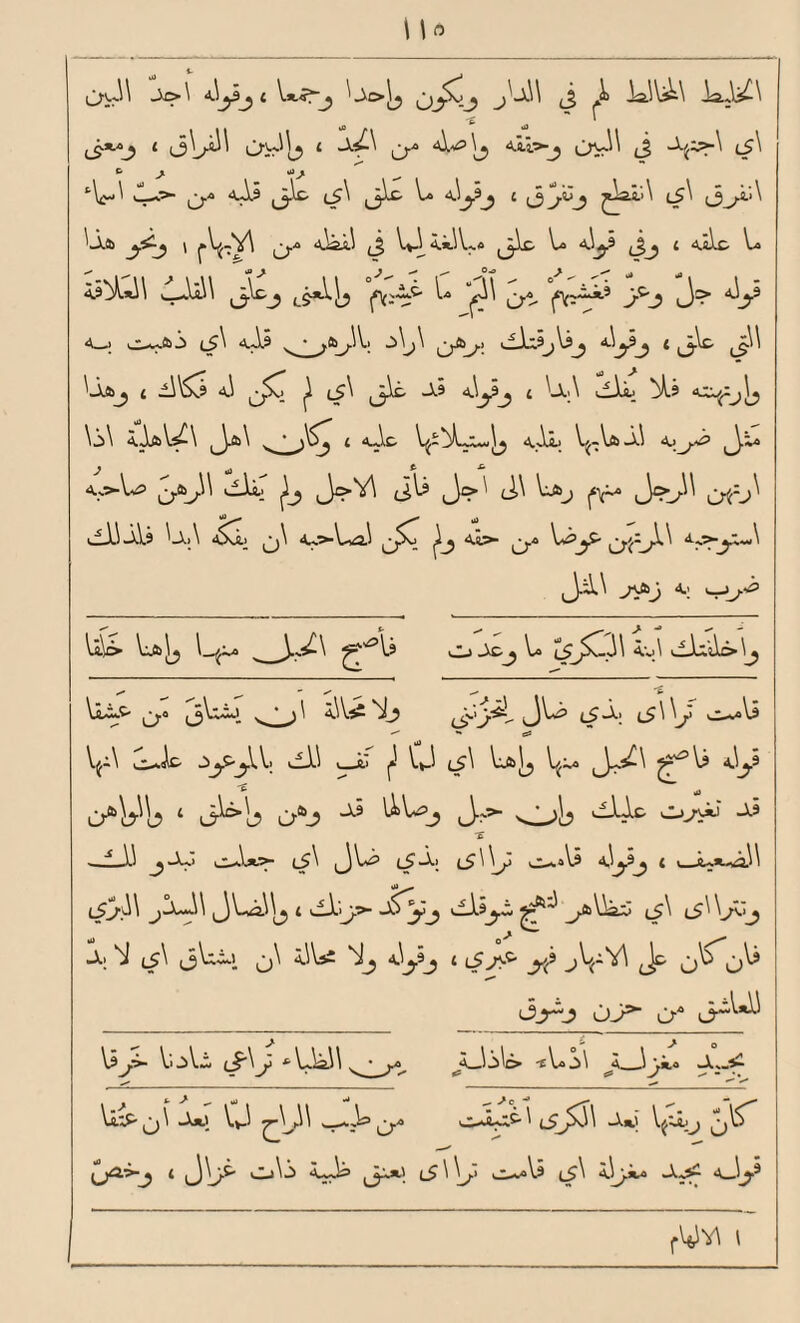 ١١٥
الخليط المخالط لهم في الدار ويكون واحدا وجمعا ، قوله أجدّ البين
أي اجتهد في البين وحققه وأصله من الجدّ ، والبين الفراق ، ومعنى
انفرق أي انقطع وتفرق ، وقوله ما علق أي علق قلبه من حبّ أسماء
ما علقه ، وفي قوله ما علق مبالغة لما في لفظه من الابهام ١ ونحو هذا
قوله جلّ وعزّ فَغَشِيَهُمْ مِنَ اليَمِّ مَا غَشِيَهُمْ والمعنى وعلق القلب العلاقة
التي علق ، وقوله وفارقتك برهن أراد بالرهن قلبه أي ذهبت به
وارتهنته فلا يفكّ أبدا ، وقوله قد غلق أي لم يكن له فكاك ، وهذا
مثل ضربه لذهابها بقلبه واستيلائها عليه ، وكان أهل الجاهلية إذا
ارتهن الرجل منهم رهنا إلى أجل فأتى الأجل ولم يفكّ الرهن صاحبه
استوجبه المرتهن عوضا من حقه ولم يكن لصاحبه أن يفكه أبدا فلذلك
ضرب به زهير المثل
وأخلفتك ابنة البكريّ ما وعدت فأصبح الحبل منها واهنا خلقا
قامت تراءى بذي ضال لتحزنني ولا محالة أن يشتاق من عشقا
قوله فأصبح الحبل منها واهنا أي لما لم تف لك بالموعود علمت أنها
قد تغيرت عليك وأرث حبل وصالها وقد وهن وأخلق ، والواهن
الضعيف ، وقوله قامت تراءى بذي ضال أي جعلت تبدو لك
وتتراءى أي تظاهر لتهيج شوقك وتؤكد حزنك ، والضال السدر البري
فان كان على الأنهار فهو عبريّ ، وقوله ولا محالة أن يشتاق أي لا بدّ
للعاشق من حزن وشوق
بجيد مغزلة أدماء خاذلة من الظباء تراعي شادنا خرقا
كأنّ ريقتها بعد الكرى اغتبقت من طيّب الراح لمّا يعد أن عتقا
قوله بجيد مغزلة أي قامت تراءى بعنق ظبية ذات غزال ، وخصّ
١ الإلهام